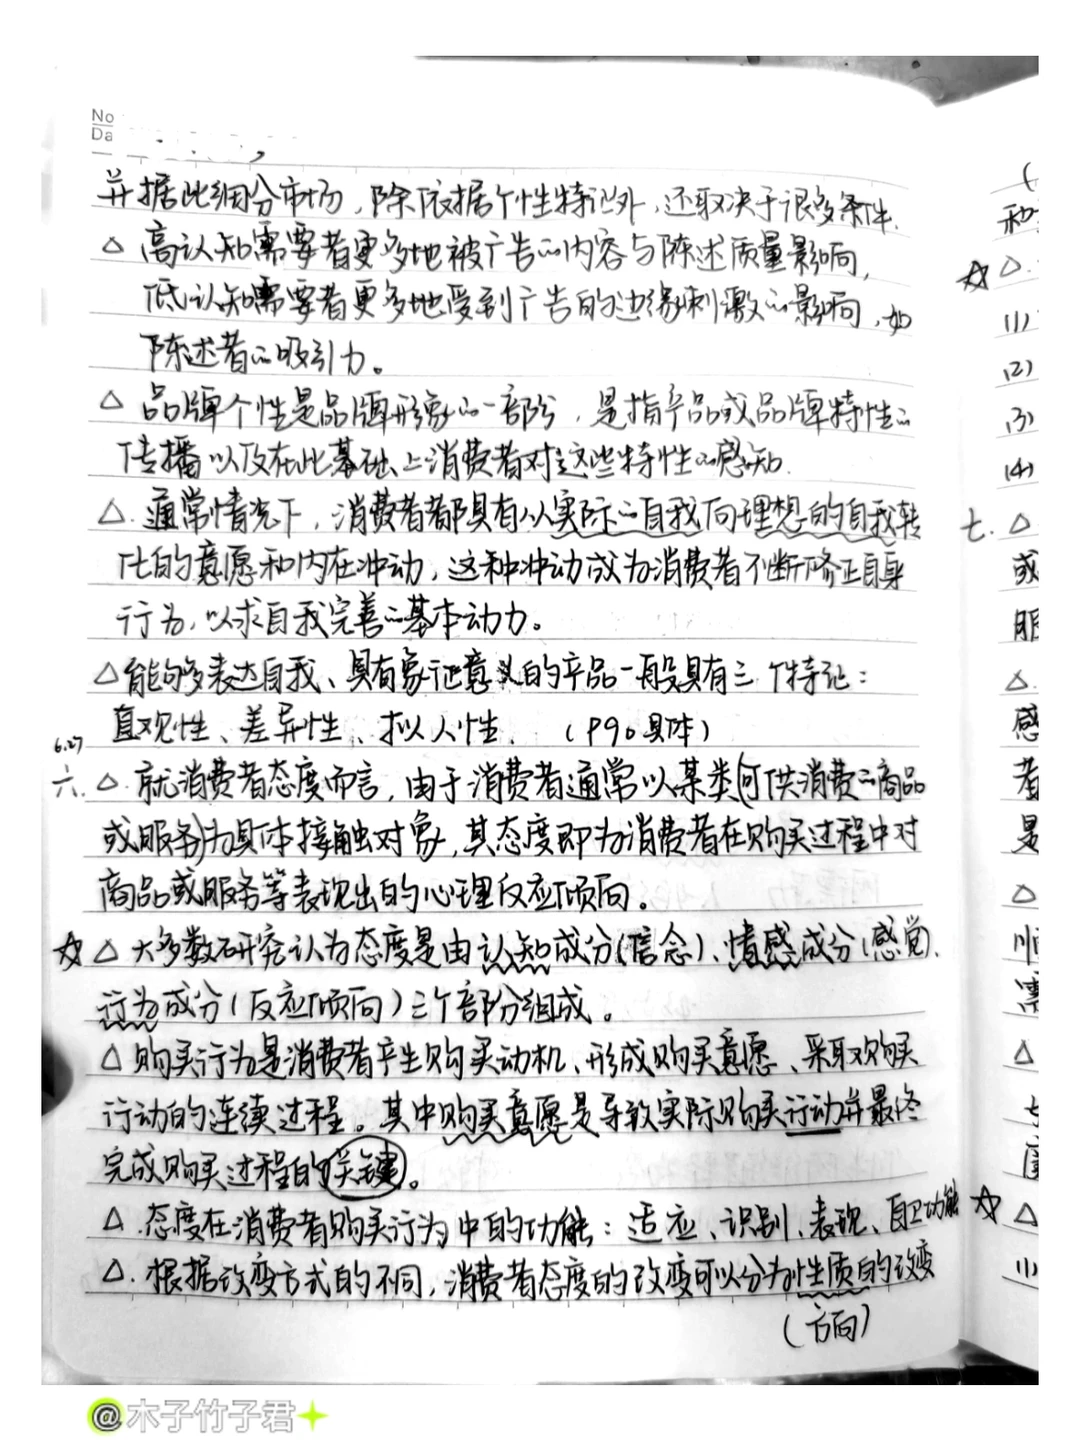 No
Da
并据此细分市场，除依据个性特征外，还取决于很多条件.
△ 高认知需要者更多地被广告的内容与陈述质量影响，
低认知需要者更多地受到广告的边缘刺激的影响，如
陈述者的吸引力。
△ 品牌个性是品牌形象的一部分，是指产品或品牌特性的
传播以及在此基础上消费者对这些特性的感知.
△. 通常情况下，消费者都具有从实际的自我向理想的自我转
化的意愿和内在冲动，这种冲动成为消费者不断修正自身
行为，以求自我完善的基本动力。
△能够表达自我、具有象征意义的产品一般具有三个特征：
直观性、差异性、拟人性. （P90具体）
6.27
六. △. 就消费者态度而言，由于消费者通常以某类(可供消费的商品
或服务)为具体接触对象，其态度即为消费者在购买过程中对
商品或服务等表现出的心理反应倾向。
☆ △ 大多数研究认为态度是由认知成分(信念)、情感成分(感觉)、
行为成分(反应倾向)三个部分组成。
△ 购买行为是消费者产生购买动机、形成购买意愿、采取购买
行动的连续过程。其中购买意愿是导致实际购买行动并最终
完成购买过程的关键。
△. 态度在消费者购买行为中的功能：适应、识别、表现、自卫功能
△. 根据改变方式的不同，消费者态度的改变可以分为性质的改变
（方向）
(
和
☆ △.
(1)
(2)
(3)
(4)
七. △
或
服
△.
感
者
是
△
顺
需
△
☆ △
(1)
@木子竹子君